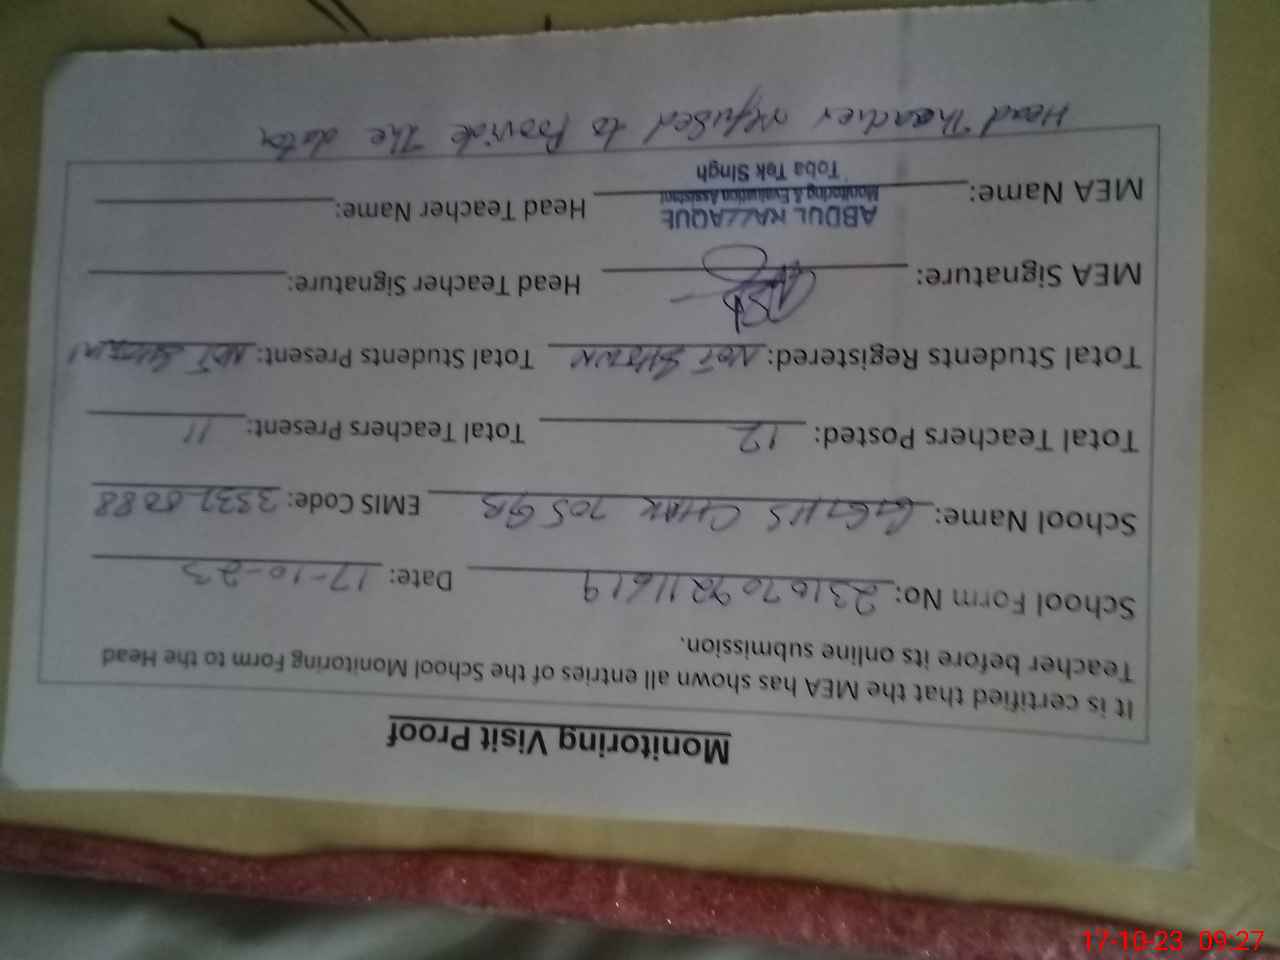 Monitoring Visit Proof
It is certified that the MEA has shown all entries of the School Monitoring Form to the Head
Teacher before its online submission.
School Form No: Date: 17-10-23
School Name: GGHS CHAK 705 GB EMIS Code:
Total Teachers Posted: 12 Total Teachers Present: 11
Total Students Registered: NOT SHOWN Total Students Present: NOT SHOWN
MEA Signature: Head Teacher Signature:
ABDUL RAZZAQUE
MEA Name: Monitoring & Evaluation Assistant Head Teacher Name:
Toba Tek Singh
Head Teacher refused to Provide The data
17-10-23 09:27